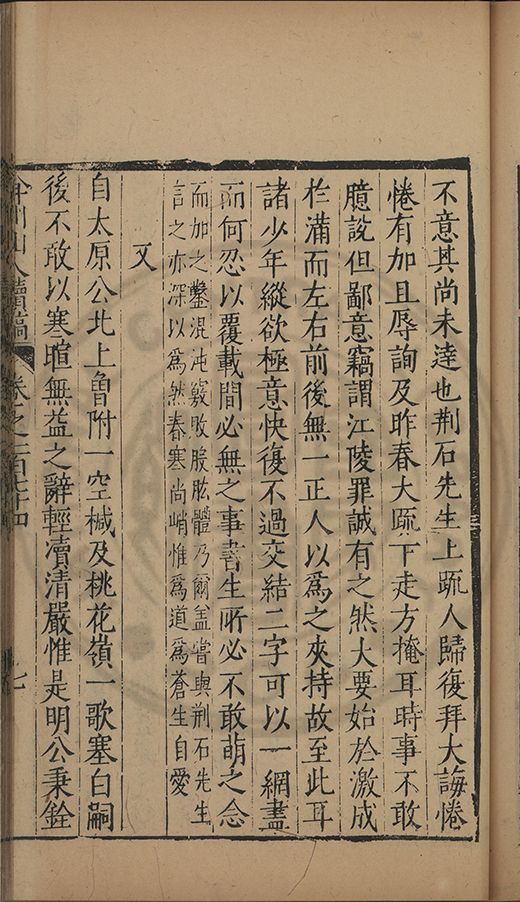 不意其尚未達也荆石先生上疏人歸復拜大誨惓
惓有加且辱詢及昨春大疏下走方掩耳時事不敢
臆說但鄙意竊謂江陵罪誠有之然大要始於激成
於滿而左右前後無一正人以爲之夾持故至此耳
諸少年縱欲極意快復不過交結二字可以一網盡
而何忍以覆載間必無之事書生所必不敢萌之念
而加之鑿混沌竅敗股肱體乃爾盖嘗與荆石先生
言之亦深以爲然春寒尚峭惟爲道爲蒼生自愛
又
自太原公北上魯附一空椷及桃花嶺一歌塞白嗣
後不敢以寒暄無益之辭輕瀆清嚴惟是明公秉銓
弇州山人續稿 卷之一百七十四 七